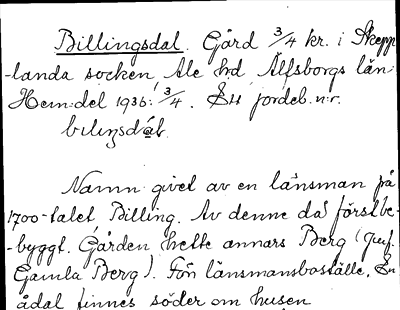 Billingsdal. Gård 3/4 kr. i Skepp-
-landa socken Ale hd Älfsborgs län
Hem:del 1936: 3/4. Sн jordeb. n:r.
bılıŋsdɑ̀l
Namn givet av en länsman på
1700-talet Billing. Av denne då först be-
-byggt. Gården hette annars Berg (Jmf.
Gamla Berg). Förr länsmansboställe. En
ådal finnes söder om husen